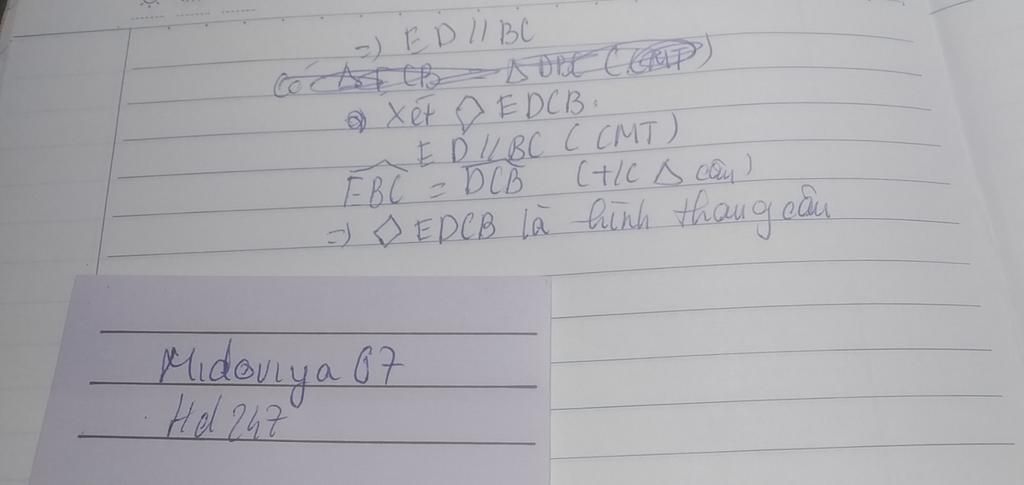 =) ED // BC
Có Δ ECB = Δ DBC (CMT)
Xét ◇ EDCB.
ED // BC (CMT)
EBC = DCB (t/c Δ cân)
=) ◇ EDCB là hình thang cân
Midoviya 07
Hd 247